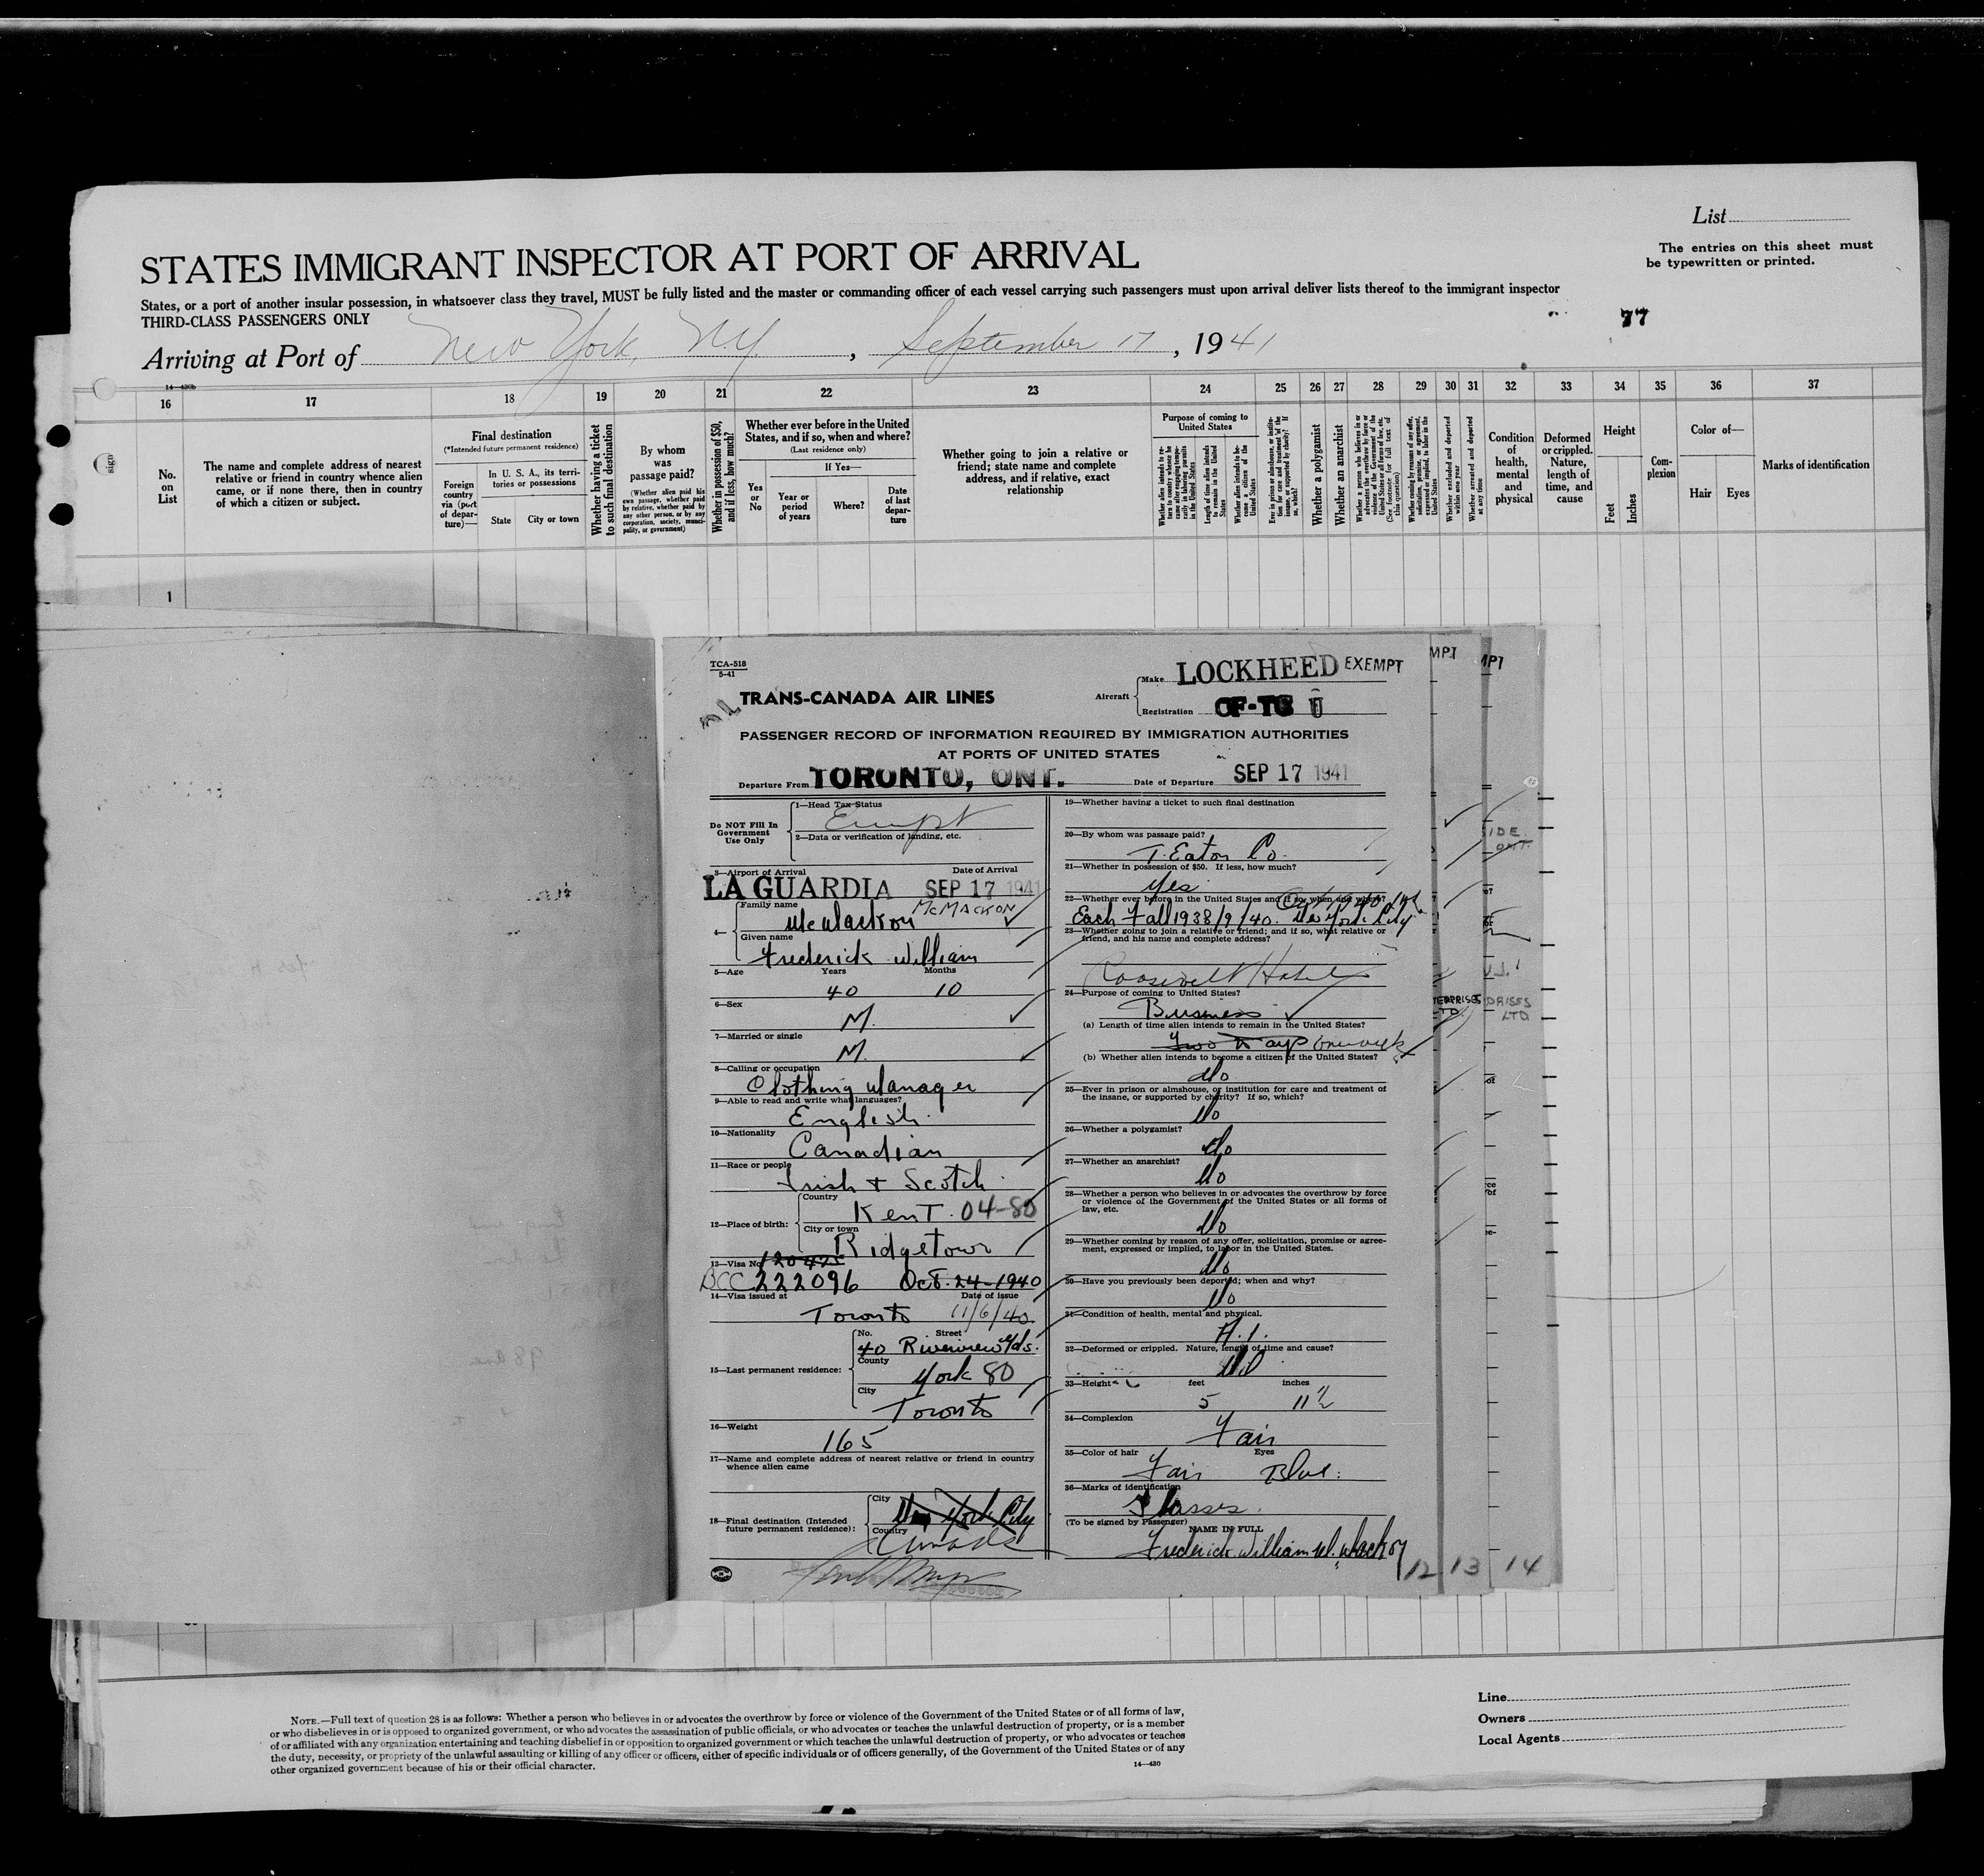 List
The entries on this sheet must
be typewritten or printed.
STATES IMMIGRANT INSPECTOR AT PORT OF ARRIVAL
States, or a port of another insular possession, in whatsoever class they travel, MUST be fully listed and the master or commanding officer of each vessel carrying such passengers must upon arrival deliver lists thereof to the immigrant inspector
THIRD-CLASS PASSENGERS ONLY
77
Arriving at Port of New York, N.Y. , September 17 , 1941
14—430b
16 17 18 19 20 21 22 23 24 25 26 27 28 29 30 31 32 33 34 35 36 37
No.
on
List
The name and complete address of nearest
relative or friend in country whence alien
came, or if none there, then in country
of which a citizen or subject.
Final destination
(*Intended future permanent residence)
Foreign
country
via (port
of depar-
ture)—
In U. S. A., its terri-
tories or possessions
State
City or town
Whether having a ticket
to such final destination
By whom
was
passage paid?
(Whether alien paid his
own passage, whether paid
by relative, whether paid by
any other person, or by any
corporation, society, munici-
pality, or government)
Whether in possession of $50,
and if less, how much?
Whether ever before in the United
States, and if so, when and where?
(Last residence only)
Yes
or
No
If Yes—
Year or
period
of years
Where?
Date
of last
depar-
ture
Whether going to join a relative or
friend; state name and complete
address, and if relative, exact
relationship
Purpose of coming to
United States
Whether alien intends to re-
turn to country whence he
came after engaging tempo-
rarily in laboring pursuits
in the United States
Length of time alien intends
to remain in the United
States
Whether alien intends to be-
come a citizen of the
United States
Ever in prison or almshouse, or institu-
tion for care and treatment of the
insane, or supported by charity? If
so, which?
Whether a polygamist
Whether an anarchist
Whether a person who believes in or
advocates the overthrow by force or
violence of the Government of the
United States or all forms of law, etc.
(See footnote for full text of
this question)
Whether coming by reason of any offer,
solicitation, promise, or agreement,
expressed or implied, to labor in the
United States
Whether excluded and deported
within one year
Whether arrested and deported
at any time
Condition
of
health,
mental
and
physical
Deformed
or crippled.
Nature,
length of
time, and
cause
Height
Feet
Inches
Com-
plexion
Color of—
Hair
Eyes
Marks of identification
1
TCA-518
5-41
TRANS-CANADA AIR LINES
Aircraft
Make LOCKHEED EXEMPT
Registration CF-TC
PASSENGER RECORD OF INFORMATION REQUIRED BY IMMIGRATION AUTHORITIES
AT PORTS OF UNITED STATES
Departure From TORONTO, ONT. Date of Departure SEP 17 1941
Do NOT Fill In
Government
Use Only
1—Head Tax Status
Exempt
2—Data or verification of landing, etc.
3—Airport of Arrival Date of Arrival
LA GUARDIA SEP 17 1941
4— Family name McMackon McMACKON
Given name
Frederick William
5—Age Years Months
40 10
6—Sex
M.
7—Married or single
M.
8—Calling or occupation
Clothing Manager
9—Able to read and write what languages?
English.
10—Nationality
Canadian
11—Race or people
Irish + Scotch.
12—Place of birth: Country
Kent. 04-80
City or town
Ridgetown
13—Visa No. 120475
BCC 222096 Oct. 24-1940
14—Visa issued at Date of issue
Toronto 11/6/40
15—Last permanent residence:
No. Street
40 Riverview Gds.
County
York 80
City
Toronto
16—Weight
165
17—Name and complete address of nearest relative or friend in country
whence alien came
18—Final destination (Intended
future permanent residence):
City New York City
Country
Canada
19—Whether having a ticket to such final destination
20—By whom was passage paid?
T. Eaton Co.
21—Whether in possession of $50. If less, how much?
Yes
22—Whether ever before in the United States and if so, when and where?
Each Fall 1938/9/40. New York City
23—Whether going to join a relative or friend; and if so, what relative or
friend, and his name and complete address?
Roosevelt Hotel
24—Purpose of coming to United States?
Business
(a) Length of time alien intends to remain in the United States?
Two Days one week
(b) Whether alien intends to become a citizen of the United States?
No
25—Ever in prison or almshouse, or institution for care and treatment of
the insane, or supported by charity? If so, which?
No
26—Whether a polygamist?
No
27—Whether an anarchist?
No
28—Whether a person who believes in or advocates the overthrow by force
or violence of the Government of the United States or all forms of
law, etc.
No
29—Whether coming by reason of any offer, solicitation, promise or agree-
ment, expressed or implied, to labor in the United States.
No
30—Have you previously been deported; when and why?
No
31—Condition of health, mental and physical.
A.1.
32—Deformed or crippled. Nature, length of time and cause?
No
33—Height feet inches
5 11½
34—Complexion
Fair
35—Color of hair Eyes
Fair Blue.
36—Marks of identification
Glasses.
(To be signed by Passenger)
NAME IN FULL
Frederick William McMackon
12 13 14
NOTE.—Full text of question 28 is as follows: Whether a person who believes in or advocates the overthrow by force or violence of the Government of the United States or of all forms of law,
or who disbelieves in or is opposed to organized government, or who advocates the assassination of public officials, or who advocates or teaches the unlawful destruction of property, or is a member
of or affiliated with any organization entertaining and teaching disbelief in or opposition to organized government or which teaches the unlawful destruction of property, or who advocates or teaches
the duty, necessity, or propriety of the unlawful assaulting or killing of any officer or officers, either of specific individuals or of officers generally, of the Government of the United States or of any
other organized government because of his or their official character.
14—430
Line
Owners
Local Agents